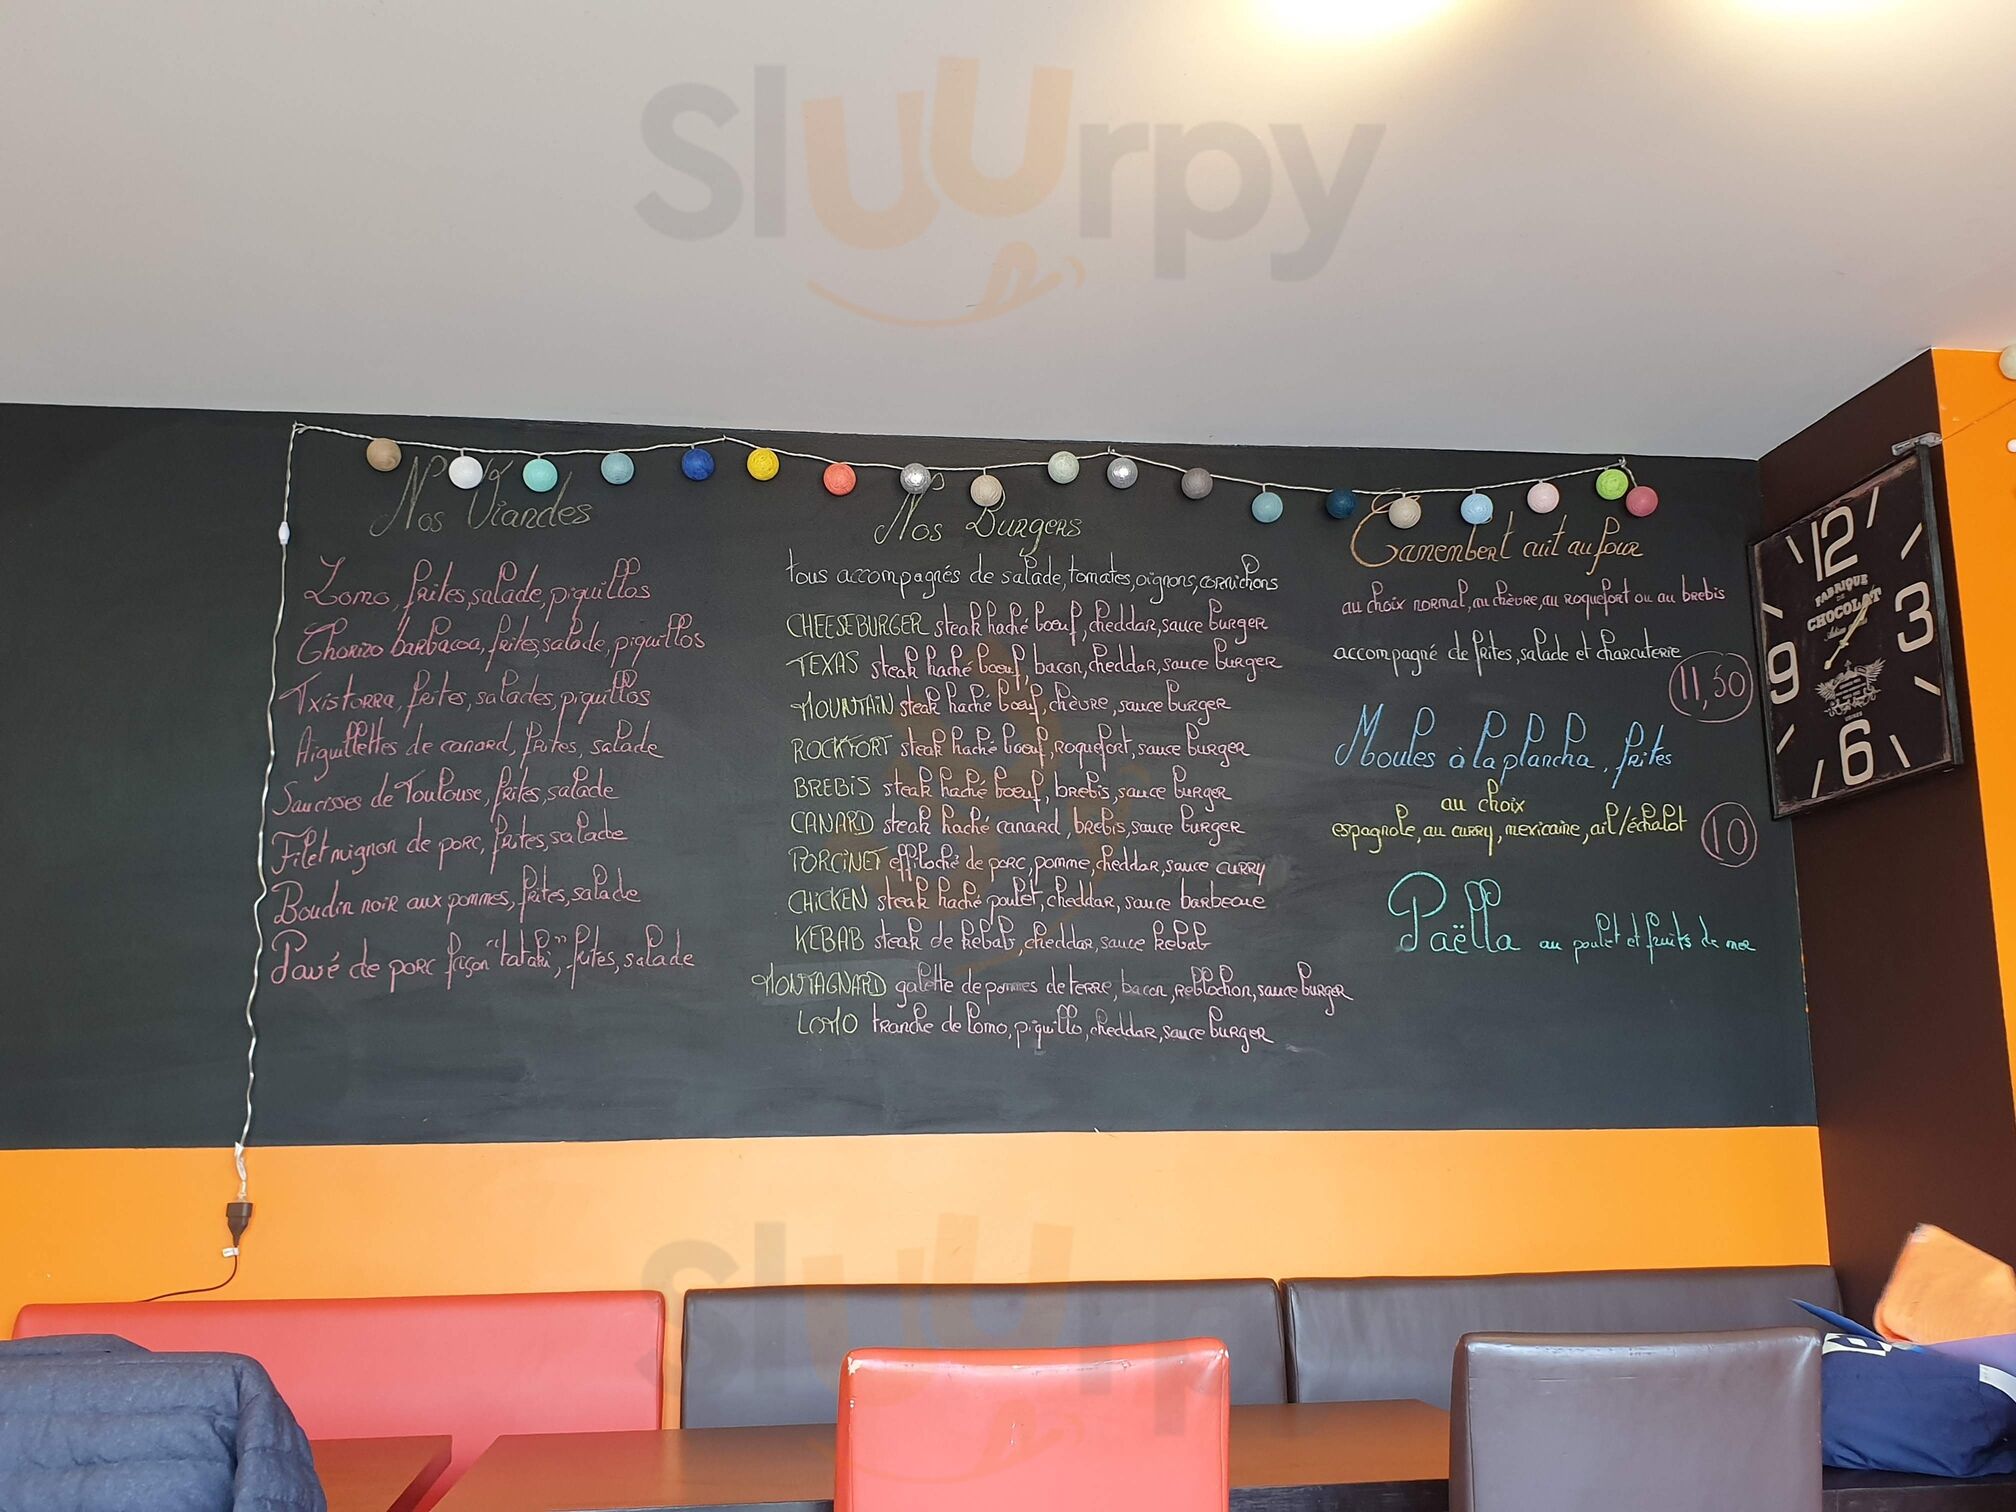 Sluurpy
Nos Viandes
Lomo, frites, salade, piquillos
Chorizo barbacoa, frites, salade, piquillos
Txistorra, frites, salades, piquillos
Aiguillettes de canard, frites, salade
Saucisses de Toulouse, frites, salade
Filet mignon de porc, frites, salade
Boudin noir aux pommes, frites, salade
Pavé de porc façon "tataki", frites, salade
Nos Burgers
tous accompagnés de salade, tomates, oignons, cornichons
CHEESEBURGER steak haché boeuf, cheddar, sauce burger
TEXAS steak haché boeuf, bacon, cheddar, sauce burger
MOUNTAIN steak haché boeuf, chèvre, sauce burger
ROCKFORT steak haché boeuf, roquefort, sauce burger
BREBIS steak haché boeuf, brebis, sauce burger
CANARD steak haché canard, brebis, sauce burger
PORCINET effiloché de porc, pomme, cheddar, sauce curry
CHICKEN steak haché poulet, cheddar, sauce barbecue
KEBAB steak de kebab, cheddar, sauce kebab
MONTAGNARD galette de pommes de terre, bacon, reblochon, sauce burger
LOMO tranche de lomo, piquillo, cheddar, sauce burger
Camembert cuit au four
au choix normal, au chèvre, au roquefort ou au brebis
accompagné de frites, salade et charcuterie
11,50
Moules à la plancha, frites
au choix
espagnole, au curry, mexicaine, ail/échalot
10
Paëlla au poulet et fruits de mer
12
FABRIQUE
DE
CHOCOLAT
9
3
6
Sluurpy